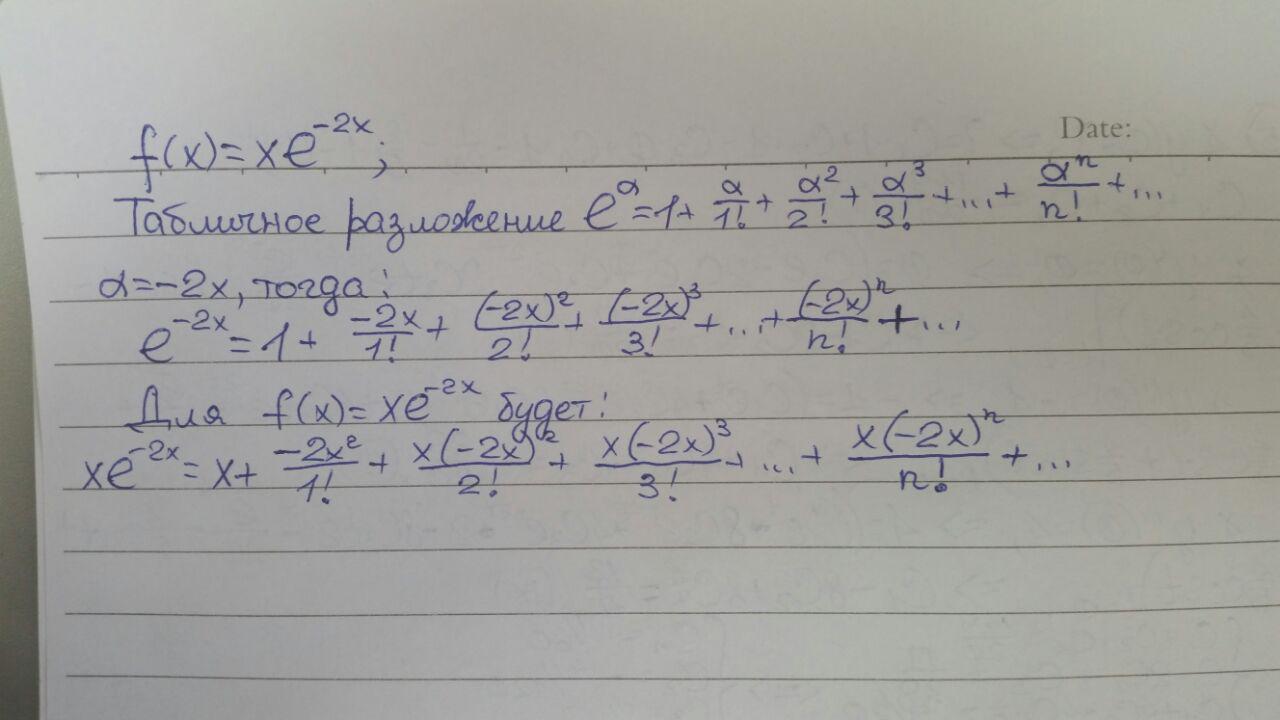 Date:
f(x)=xe^{-2x};
Табличное разложение e^α=1+ α/1! + α²/2! + α³/3! +...+ α^n/n! +...
α=-2x, тогда:
e^{-2x}=1+ -2x/1! + (-2x)²/2! + (-2x)³/3! +...+ (-2x)^n/n! +...
Для f(x)=xe^{-2x} будет:
xe^{-2x}=x+ -2x²/1! + x(-2x)²/2! + x(-2x)³/3! +...+ x(-2x)^n/n! +...